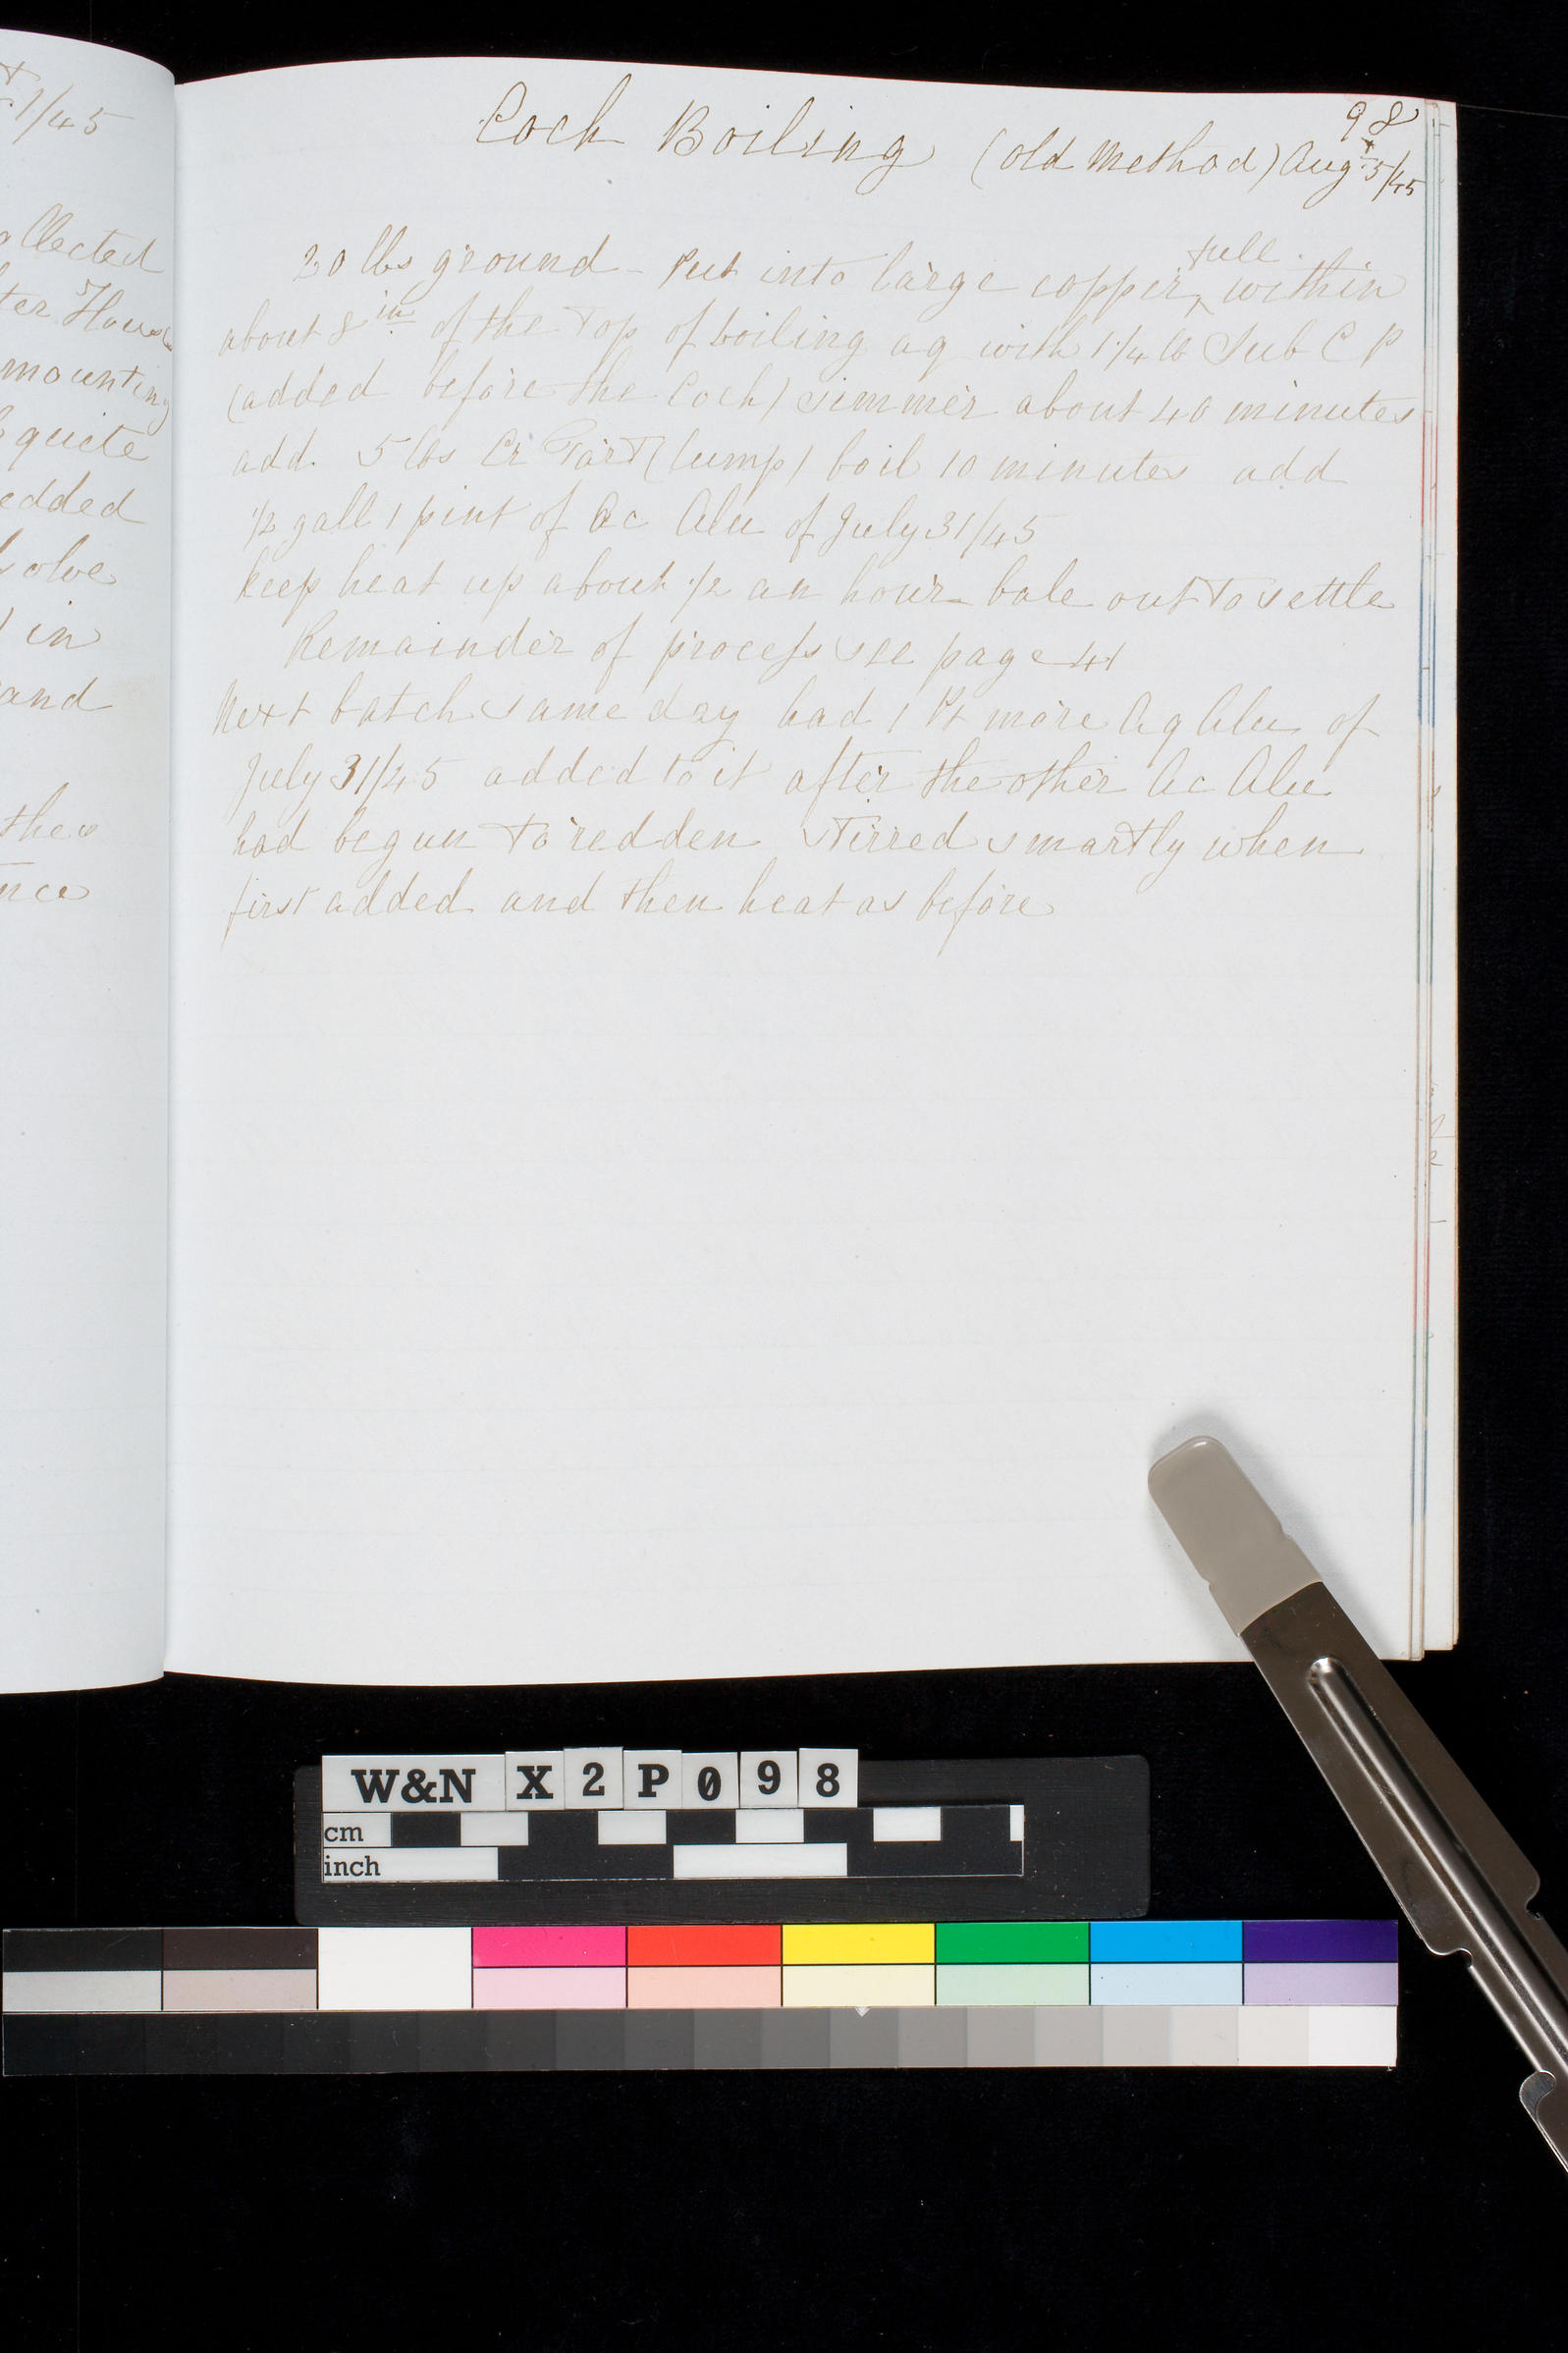 t 1/45
ollected
ter House
mounting
quite
edded
solve
in
and
the
nce
98
Coch Boiling (old Method) Augt 5/45
20 lbs ground - Put into large copper, full within
about 8 in of the Top of boiling aq with 1 1/4 lb Sub C P
(added before the Coch) simmer about 40 minutes
add. 5 lbs Cr Tart (lump) boil 10 minutes add
1/2 gall 1 pint of Ac Alu of July 31/45
keep heat up about 1/2 an hour - bale out to settle
Remainder of process see page 41
Next batch same day had 1 Pt more Aq Alu of
July 31/45 added to it after the other Ac Alu
had begun to redden Stirred smartly when
first added and then heat as before
W&N X2P098
cm
inch